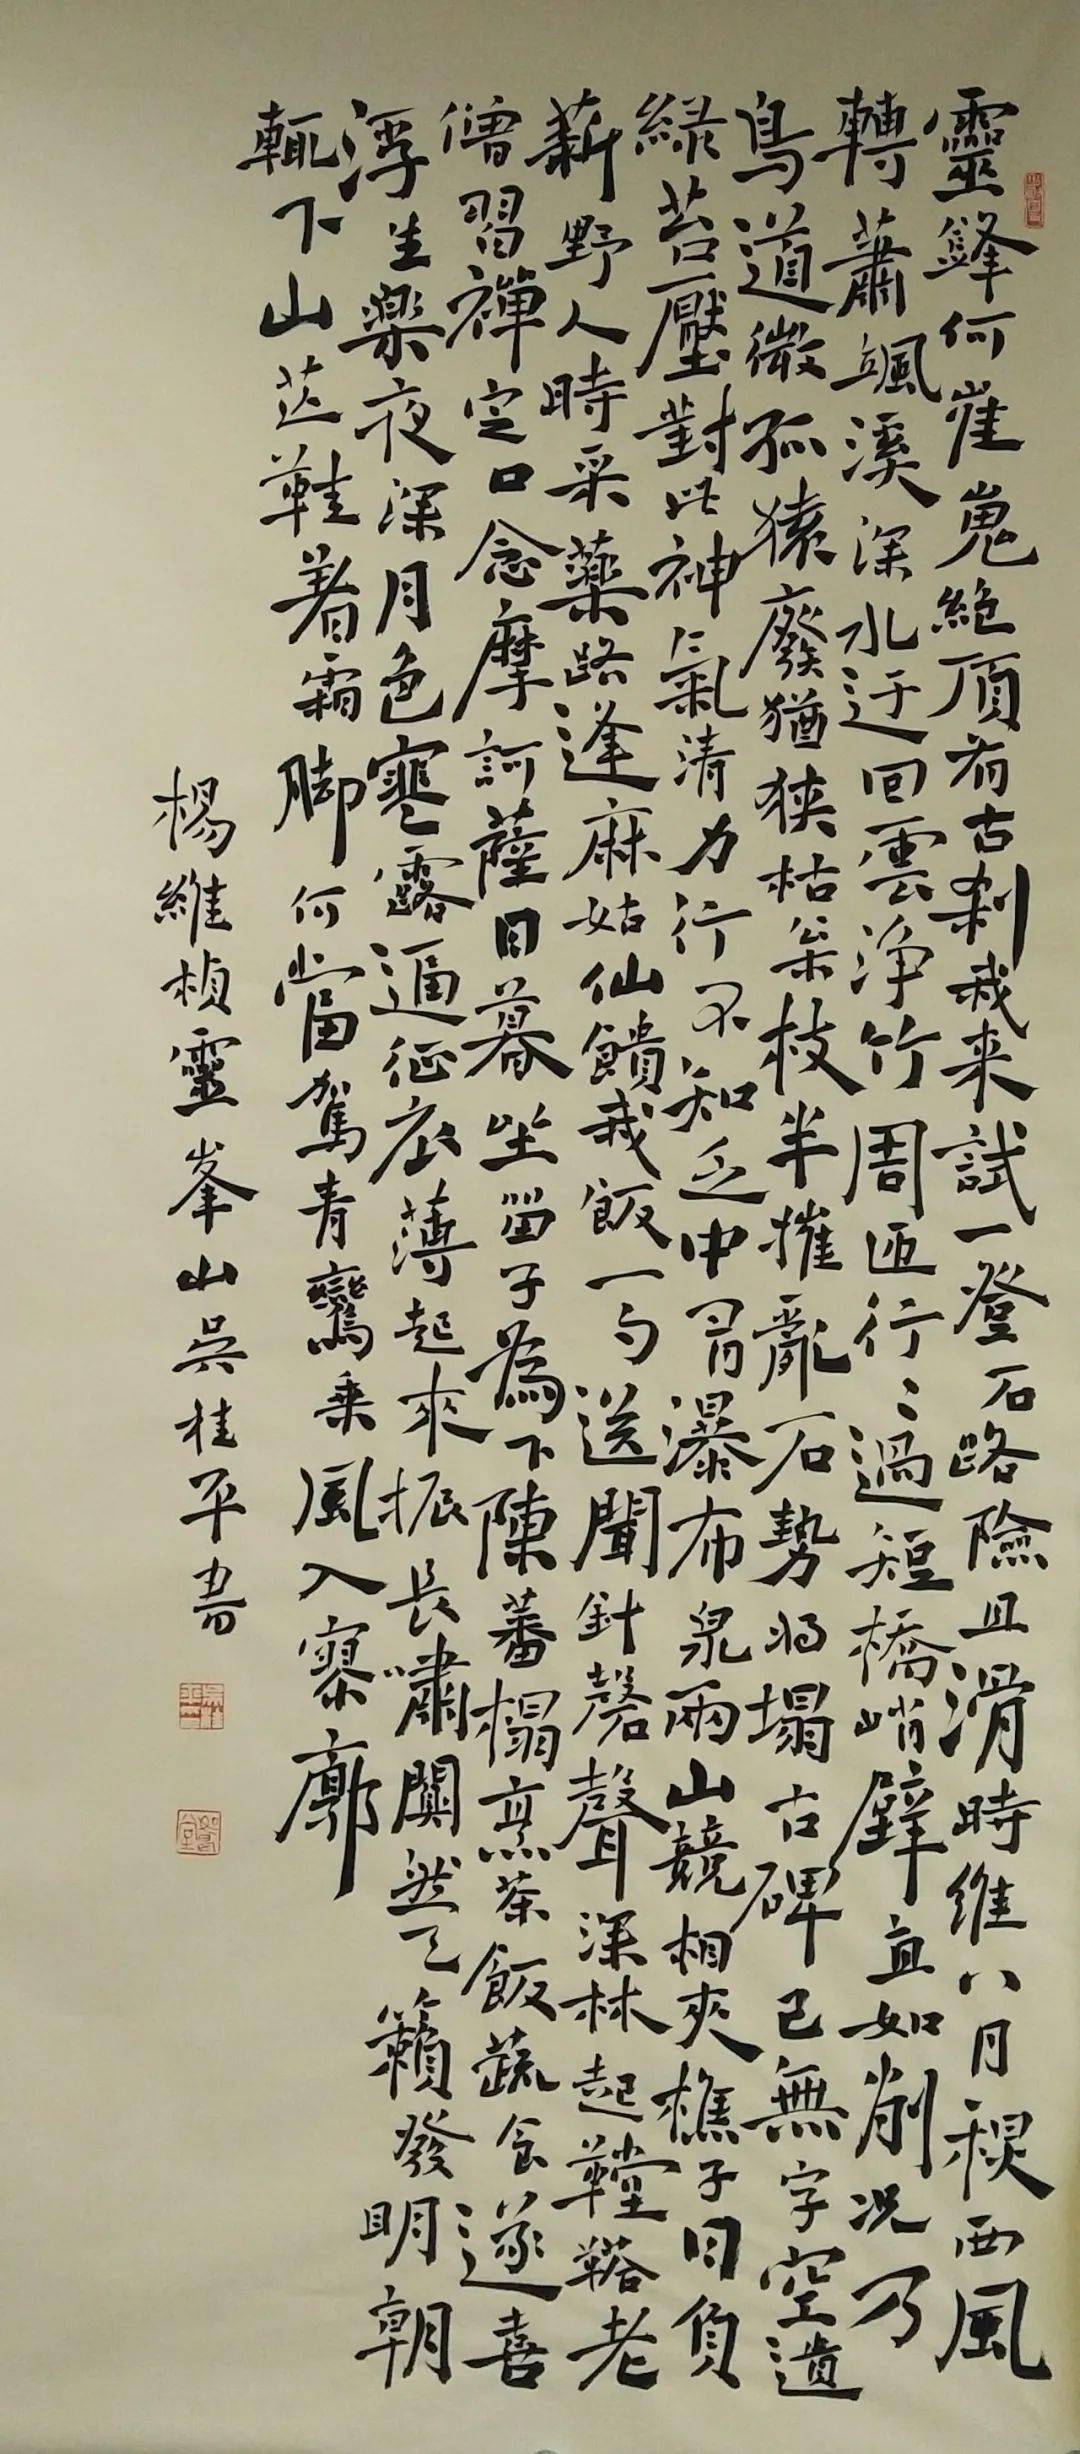 靈鋒何崔嵬絶頂有古刹我来試一登石路險且滑時維八月秋西風
轉蕭颯溪深水迂回雲浄竹周匝行〻過短橋峭壁直如削况乃
鳥道微孤猿廢猶狹枯藤枝半摧亂石勢将塌古碑已無字空遺
緑苔壓對此神氣清力行不知乏中胃瀑布泉兩山競相夾樵子日負
薪野人時采藥路逢麻姑仙饋我飯一勺送聞針磬聲深林起鞺鞳老
僧習禪定口念摩訶薩日暮坐留子為下陳蕃榻烹茶飯蔬食遂喜
浮生樂夜深月色寒露逼征衣薄起來振長嘯闃然天籟發明朝
輒下山芒鞋着霜脚何當駕青鸞乗風入寥廓
楊維楨靈峯山吳桂平書